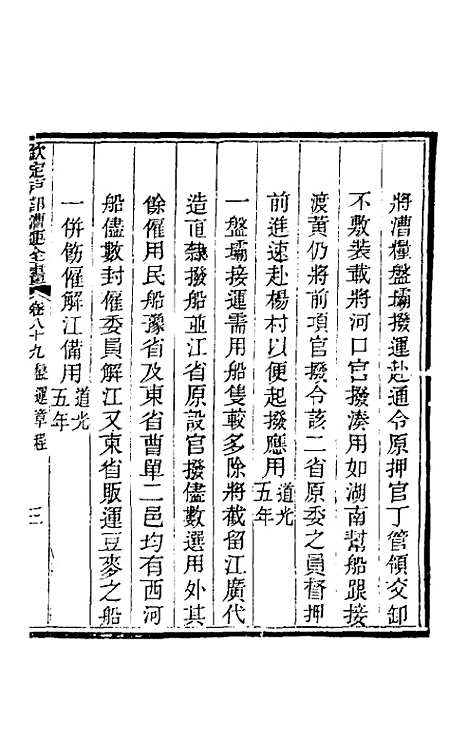 將漕糧盤壩撥運赴通令原押官丁管領交卸
不敷裝載將河口官撥湊用如湖南幫船跟接
渡黃仍將前項官撥令該二省原委之員督押
前進速赴楊村以便起撥應用道光五年
一盤壩接運需用船隻較多除將截留江廣代
造直隸撥船並江省原設官撥儘數選用外其
餘僱用民船豫省及東省曹單二邑均有西河
船儘數封僱委員解江又東省販運豆麥之船
一併飭僱解江備用道光五年
欽定戶部漕運全書 卷八十九 盤運章程 三